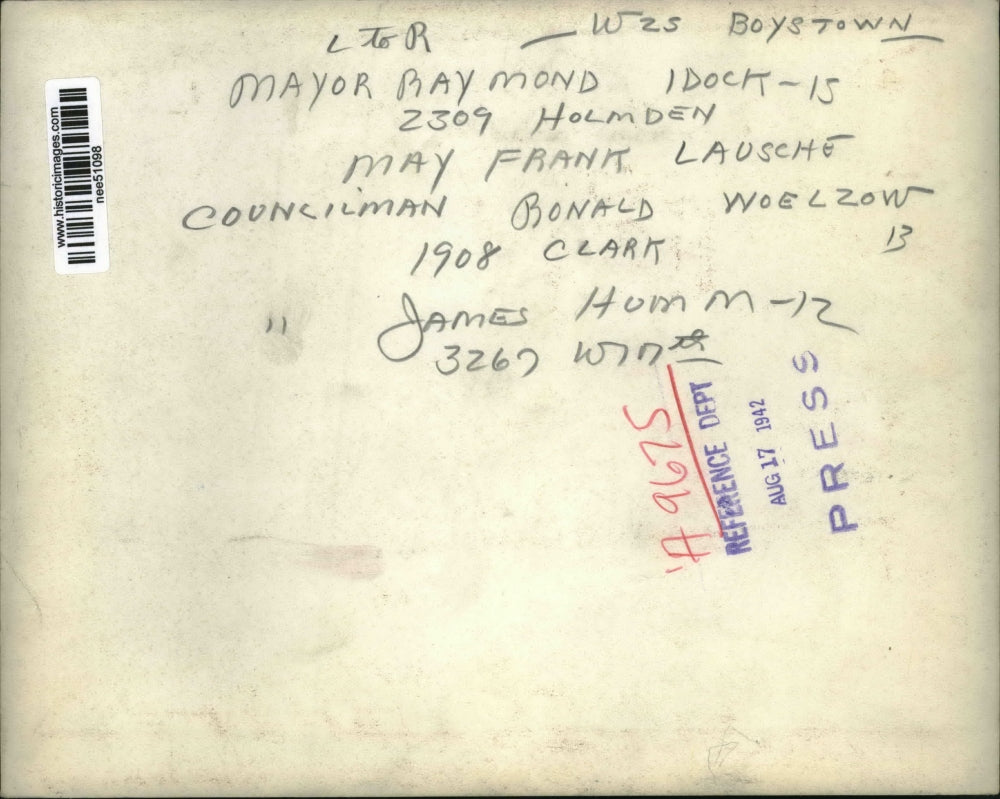 L to R — W 25 BOYSTOWN
MAYOR RAYMOND IDOCK - 15
2309 HOLMDEN
MAY FRANK LAUSCHE
COUNCILMAN RONALD WOELZOW
1908 CLARK 13
" JAMES HUMM - 12
3267 W 17th
A 9675
REFERENCE DEPT
AUG 17 1942
PRESS
www.historicimages.com
nee51098